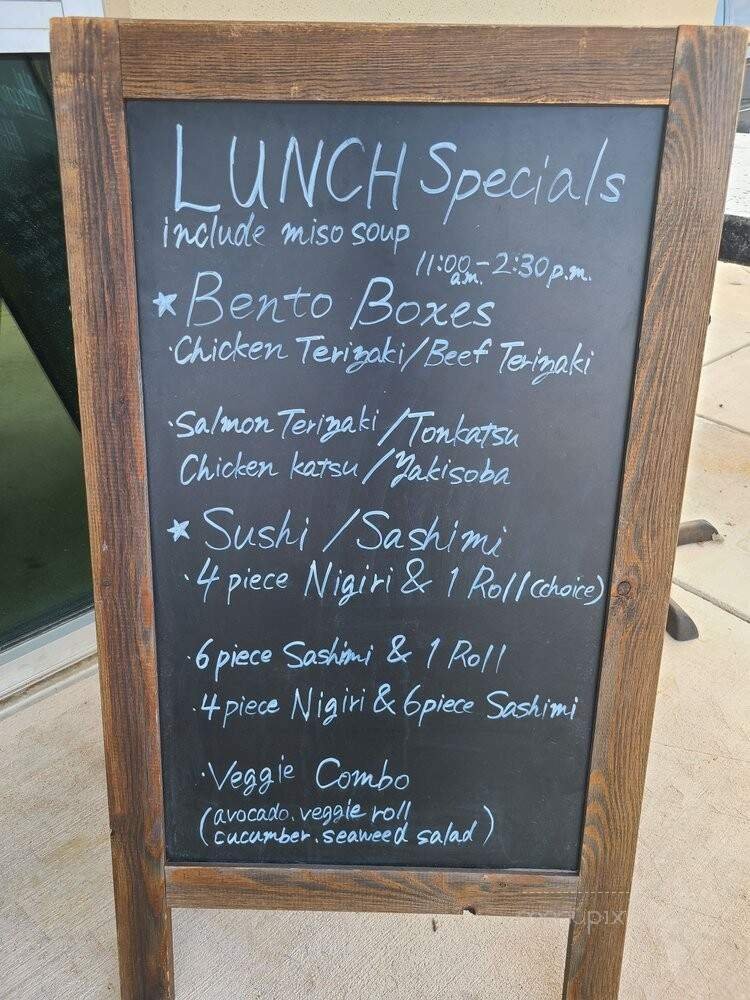 LUNCH Specials
include miso soup
11:00 a.m. - 2:30 p.m.
★ Bento Boxes
· Chicken Teriyaki / Beef Teriyaki
· Salmon Teriyaki / Tonkatsu
Chicken katsu / Yakisoba
★ Sushi / Sashimi
· 4 piece Nigiri & 1 Roll (choice)
· 6 piece Sashimi & 1 Roll
· 4 piece Nigiri & 6 piece Sashimi
· Veggie Combo
(avocado. veggie roll
cucumber. seaweed salad)